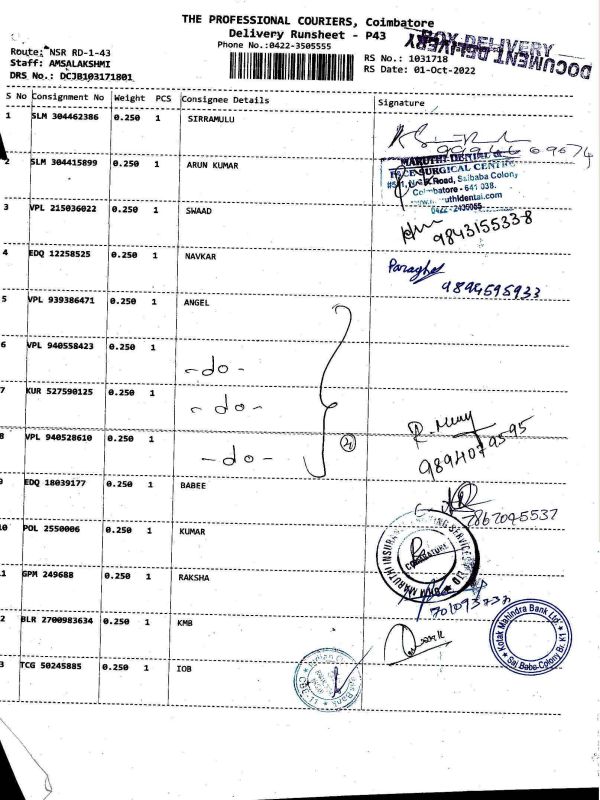 THE PROFESSIONAL COURIERS, Coimbatore
Delivery Runsheet - P43
Phone No.:0422-3505555
BOX DELIVERY
DOCUMENT DELIVERY
Route: NSR RD-1-43
Staff: AMSALAKSHMI
DRS No.: DCJB103171801
RS No.: 1031718
RS Date: 01-Oct-2022
S No Consignment No Weight PCS Consignee Details Signature
1 SLM 304462386 0.250 1 SIRRAMULU
2 SLM 304415899 0.250 1 ARUN KUMAR
MARUTHI DENTAL &
FACE SURGICAL CENTRE
Road, Saibaba Colony
Coimbatore - 641 038.
0422-2435055
3 VPL 215036022 0.250 1 SWAAD
9843155338
4 EDQ 12258525 0.250 1 NAVKAR
9894595933
5 VPL 939386471 0.250 1 ANGEL
6 VPL 940558423 0.250 1 -do-
7 KUR 527590125 0.250 1 -do-
8 VPL 940528610 0.250 1 -do- 4
9894079595
9 EDQ 18039177 0.250 1 BABEE
7867095537
10 POL 2550006 0.250 1 KUMAR
COIMBATORE
11 GPM 249688 0.250 1 RAKSHA
12 BLR 2700983634 0.250 1 KMB
Kotak Mahindra Bank Ltd.
Sai Baba Colony Br.
13 TCG 50245885 0.250 1 IOB